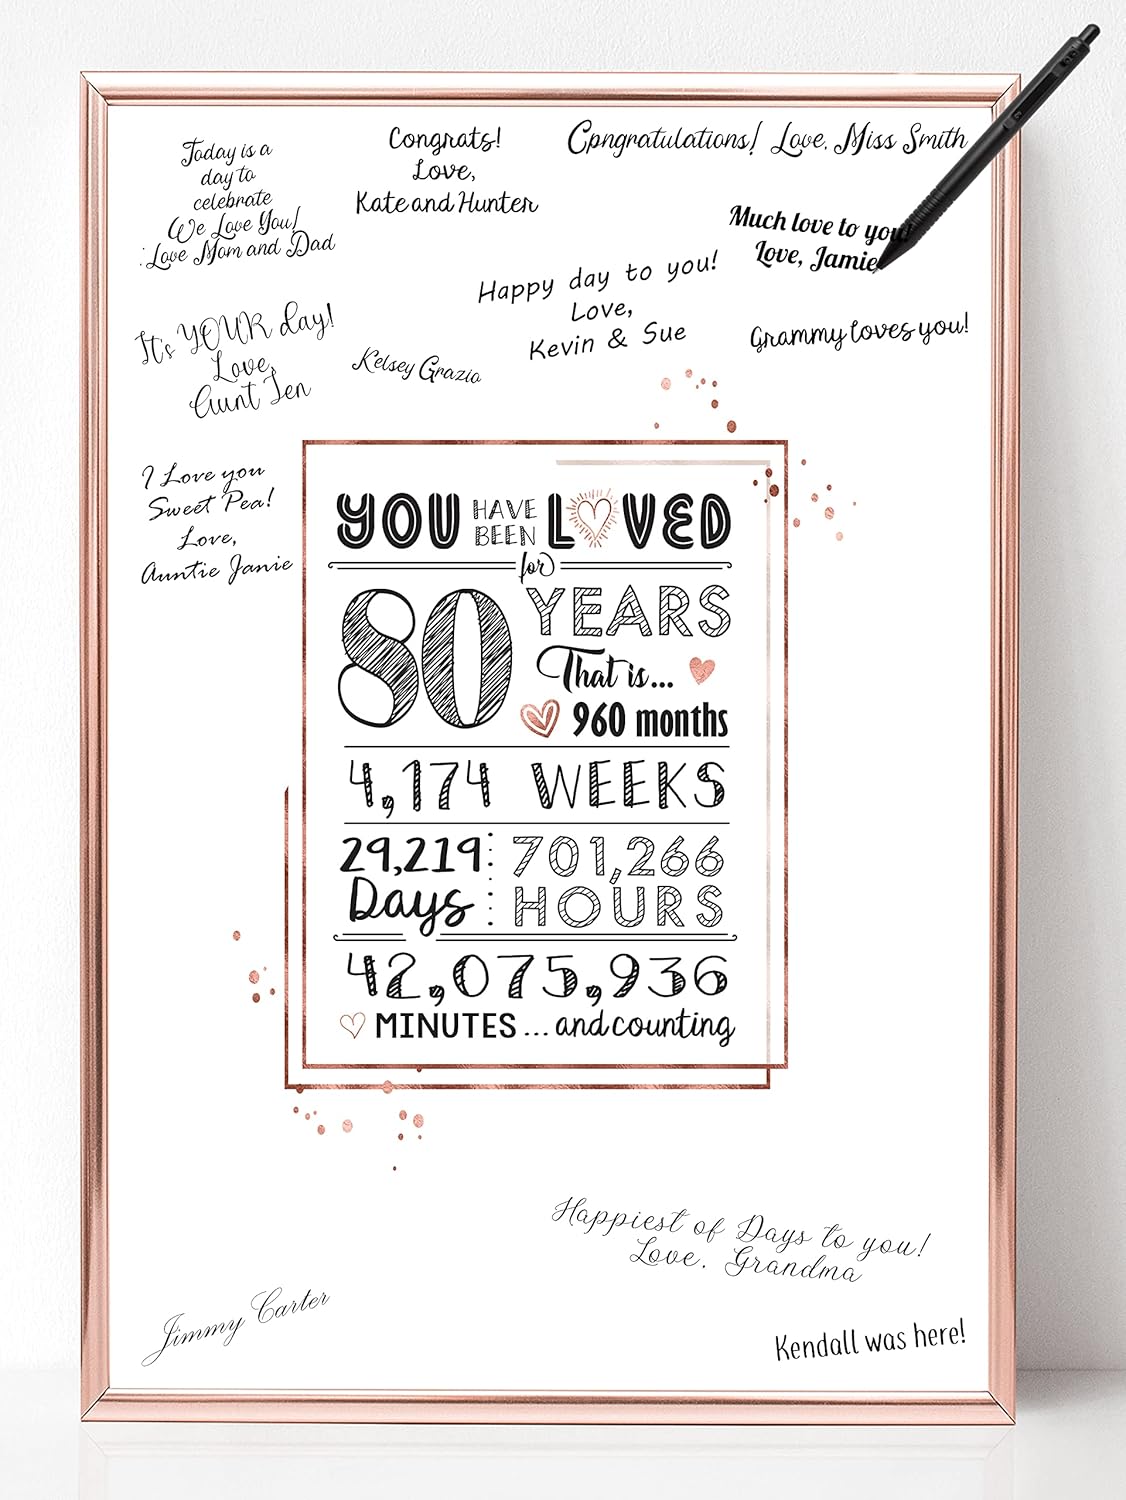 Today is a
day to
celebrate
We Love You!
Love Mom and Dad
Congrats!
Love,
Kate and Hunter
Cpngratulations! Love, Miss Smith
Much love to you!
Love, Jamie
Happy day to you!
Love,
Kevin & Sue
Grammy loves you!
It's YOUR day!
Love,
Aunt Jen
Kelsey Grazia
I Love you
Sweet Pea!
Love,
Auntie Janie
YOU HAVE BEEN LOVED
for
80 YEARS
That is...
960 months
4,174 WEEKS
29,219 Days
701,266 HOURS
42,075,936
MINUTES ... and counting
Happiest of Days to you!
Love, Grandma
Jimmy Carter
Kendall was here!